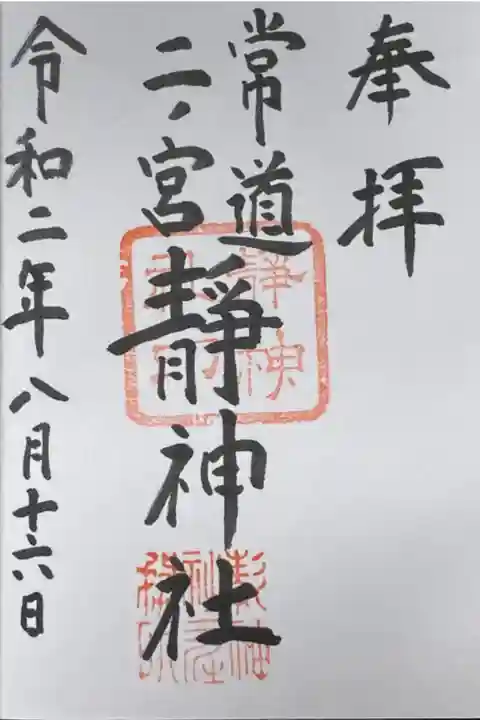 奉拝
常道
二ノ宮
靜神社
令和二年八月十六日